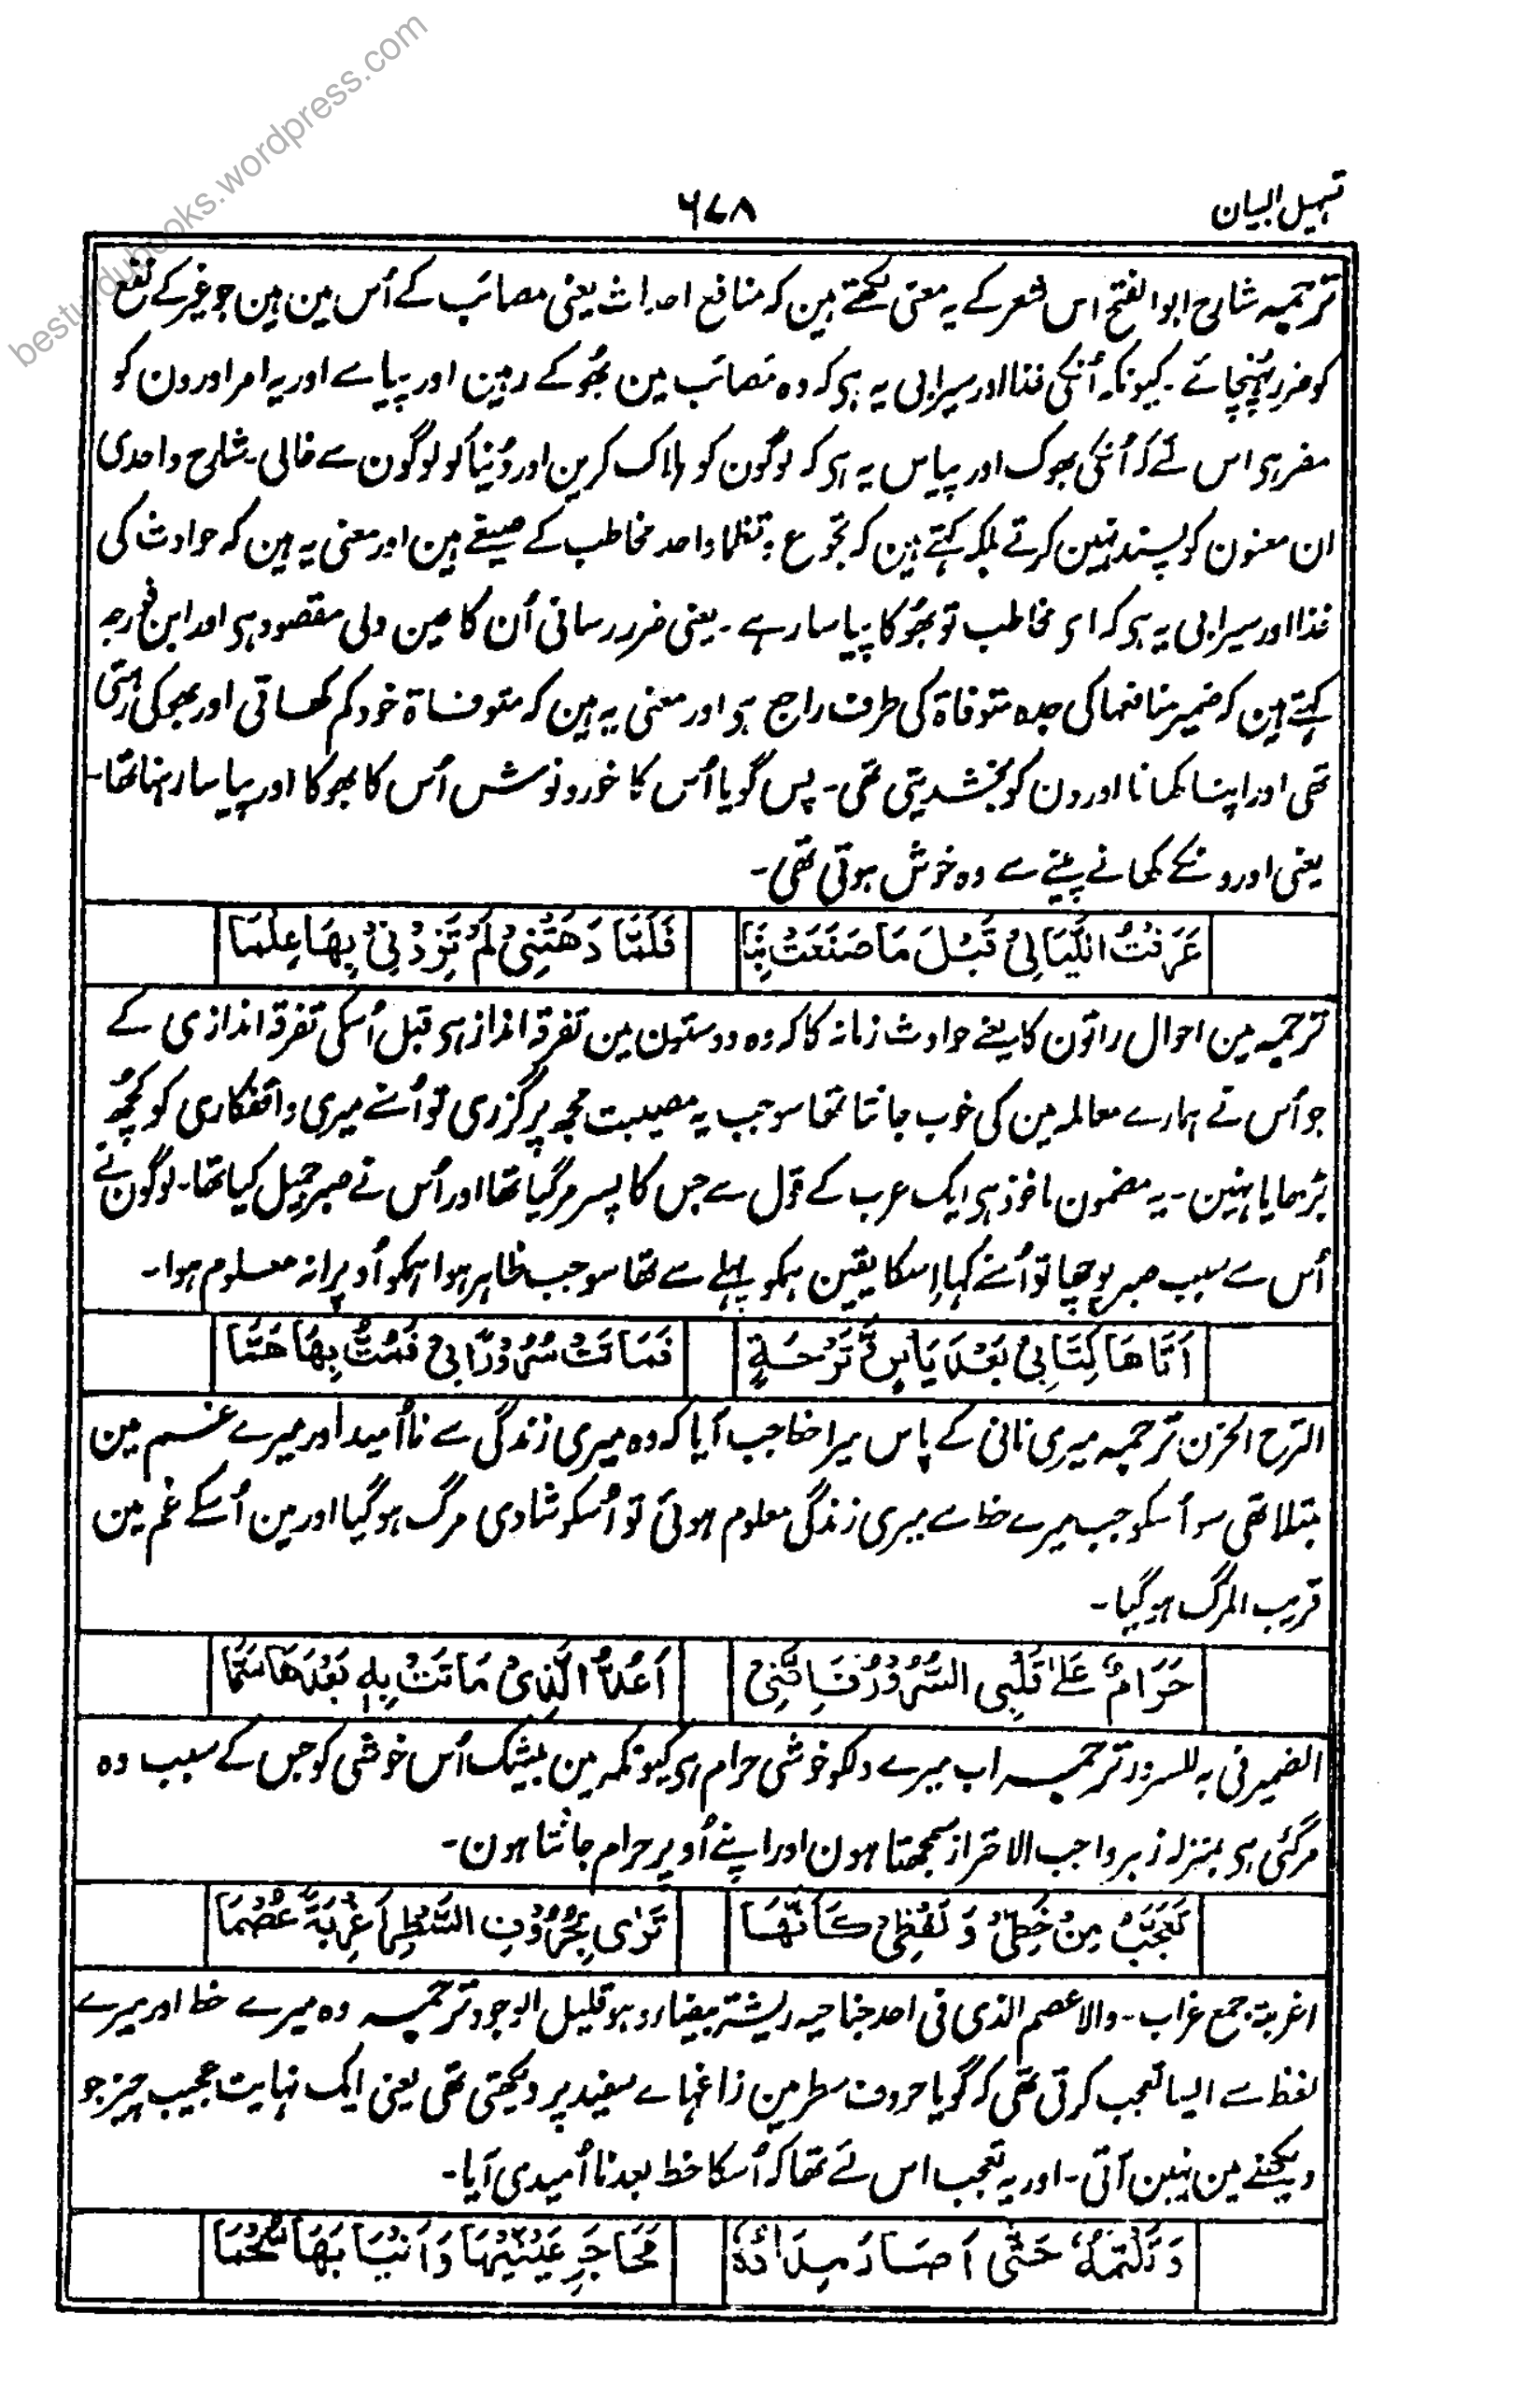 besturdubooks.wordpress.com
تسہیل البیان
۶۷۸
ترجمہ شارح ابو الفتح اس شعر کے یہ معنی لکھتے ہین کہ منافع احداث یعنی مصائب کے اُس مین ہین جو غیر کے نفع
کو ضرر پہُنچائے۔ کیونکہ اُنکی غذا اور سیرابی یہ ہی کہ وہ مصائب مین بھُوکے رہین اور پیاسے اور یہ امر اورون کو
مضر ہی اس لئے کہ اُنکی بھوک اور پیاس یہ ہی کہ لوگون کو ہلاک کرین اور دُنیا کو لوگون سے خالی۔ شارح واحدی
ان معنون کو پسند نہین کرتے بلکہ کہتے ہین کہ تجوع و تظما واحد مخاطب کے صیغے ہین اور معنی یہ ہین کہ حوادث کی
غذا اور سیرابی یہ ہی کہ ای مخاطب تو بھُوکا پیاسا رہے۔ یعنی ضرر رسانی اُن کا عین دلی مقصود ہی اور ابن فورجہ
کہتے ہین کہ ضمیر منافعہا کی جدہ متوفاۃ کی طرف راجع ہی اور معنی یہ ہین کہ متوفاۃ خود کم کھاتی اور بھوکی رہتی
تھی اور اپنا کھانا اورون کو بخشدیتی تھی۔ پس گویا اُس کا خورونوش اُس کا بھوکا اور پیاسا رہنا تھا۔
یعنی اورونکے کھانے پینے سے وہ خوش ہوتی تھی۔
عَرَفْتُ اللَّیَالِیْ قَبْلَ مَا صَنَعَتْ بِنَا فَلَمَّا دَهَتْنِیْ لَمْ تَزِدْنِیْ بِهَا عِلْمَا
ترجمہ مین احوال راتون کا یعنے حوادث زمانہ کا کہ وہ دوستون مین تفرقہ انداز ہی قبل اُسکی تفرقہ اندازی کے
جو اُس نے ہمارے معاملہ مین کی خوب جانتا تھا سو جب یہ مصیبت مجھ پر گزری تو اُسنے میری واقفکاری کو کچھُ
بڑھایا نہین۔ یہ مضمون ماخوذ ہی ایک عرب کے قول سے جس کا پسر مرگیا تھا اور اُس نے صبر جمیل کیا تھا۔ لوگون نے
اُس سے سبب صبر پوچھا تو اُسنے کہا اِسکا یقین ہمکو پہلے سے تھا سو جب ظاہر ہوا ہمکو اُوپرانہ معلوم ہوا۔
اَتَاهَا کِتَابِیْ بَعْدَ یَاْسٍ وَّ تَرْحَةٍ فَمَاتَتْ سُرُوْرًا بِیْ فَمُتُّ بِهَا هَمَّا
الترح الحزن ترجمہ میری نانی کے پاس میرا خط جب آیا کہ وہ میری زندگی سے نا اُمید اور میرے غم مین
مبتلا تھی سو اُسکو جب میرے خط سے میری زندگی معلوم ہوئی تو اُسکو شادی مرگ ہوگیا اور مین اُسکے غم مین
قریب المرگ ہوگیا۔
حَرَامٌ عَلٰے قَلْبِی السُّرُوْرُ فَاِنَّنِیْ اَعُدُّ الَّذِیْ مَاتَتْ بِهٖ بَعْدَهَا سَمَّا
الضمیر فی بہ للسرور ترجمہ اب میرے دلکو خوشی حرام ہی کیونکہ مین بیشک اُس خوشی کو جس کے سبب وہ
مرگئی ہی بمنزلہ زہر واجب الاحتراز سمجھتا ہون اور اپنے اُوپر حرام جانتا ہون۔
تَعَجَّبُ مِنْ خَطِّیْ وَ لَفْظِیْ کَاَنَّهَا تَرٰی بِحُرُوْفِ السَّطْرِ اَغْرِبَةً عُصْمَا
اغربۃ جمع غراب۔ والاعصم الذی فی احد جناحیہ ریشۃ بیضاء و ہو قلیل الوجود ترجمہ وہ میرے خط اور میرے
لفظ سے ایسا تعجب کرتی تھی کہ گویا حروف سطر مین زاغہاے سفید پر دیکھتی تھی یعنی ایک نہایت عجیب چیز جو
دیکھنے مین نہین آتی۔ اور یہ تعجب اس لئے تھا کہ اُسکا خط بعد نا اُمیدی آیا۔
وَ تَلْثِمُهٗ حَتّٰی اَصَارَ مِدَادُهٗ مَحَاجِرَ عَیْنَیْهَا وَ اَنْیَابَهَا سُحْمَا